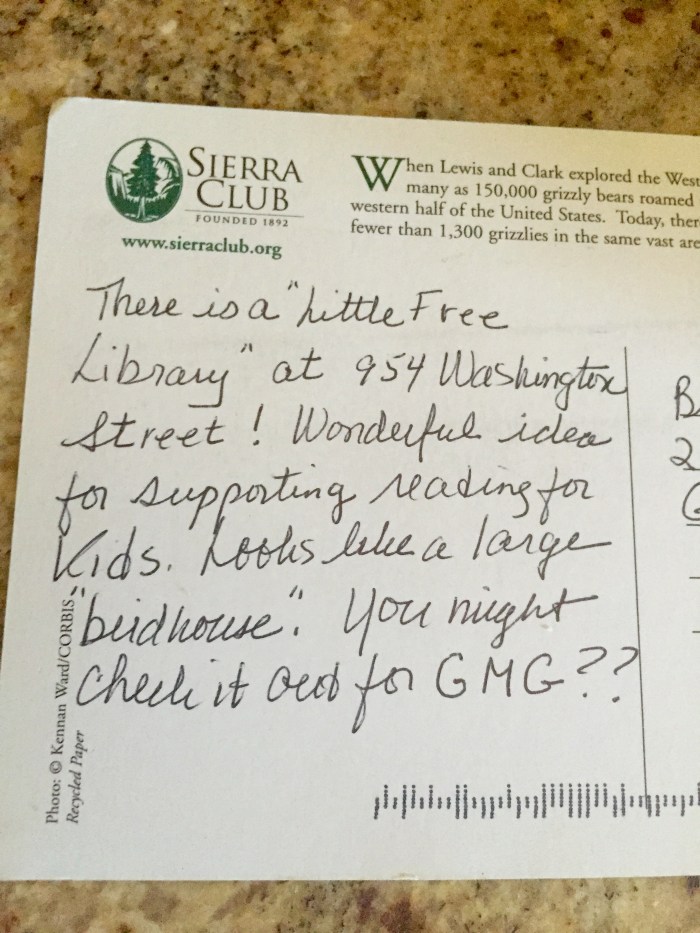 SIERRA
CLUB
FOUNDED 1892
www.sierraclub.org
When Lewis and Clark explored the West
many as 150,000 grizzly bears roamed
western half of the United States. Today, ther
fewer than 1,300 grizzlies in the same vast are
There is a "Little Free
Library" at 954 Washington
Street! Wonderful idea
for supporting reading for
Kids. Looks like a large
"birdhouse". You might
Check it out for GMG??
B
2
G
Photo: © Kennan Ward/CORBIS
Recycled Paper